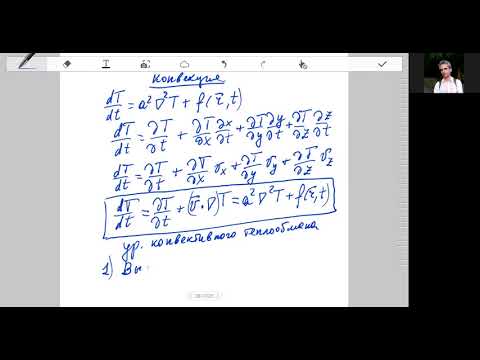 Конвекция
dT/dt = a² ∇² T + f(r̄, t)
dT/dt = ∂T/∂t + ∂T/∂x ∂x/∂t + ∂T/∂y ∂y/∂t + ∂T/∂z ∂z/∂t
dT/dt = ∂T/∂t + ∂T/∂x v_x + ∂T/∂y v_y + ∂T/∂z v_z
dT/dt = ∂T/∂t + (v̄·∇)T = a² ∇² T + f(r̄, t)
ур. конвективного теплообмена
1) Вы